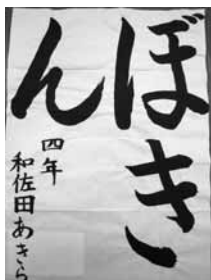 ぼき
ん
四年
和佐田あきら